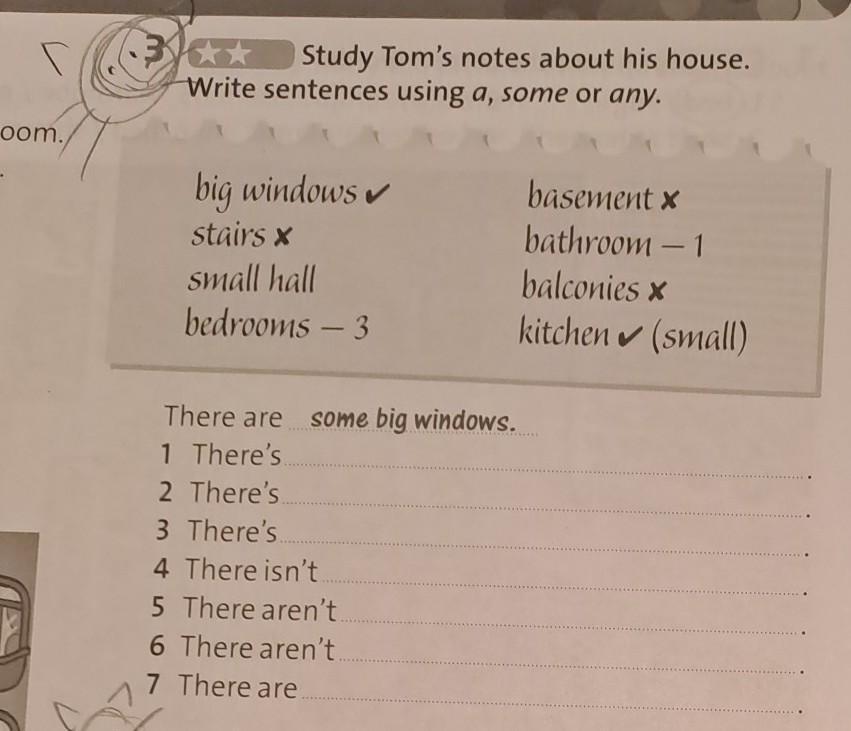 3 Study Tom's notes about his house.
Write sentences using a, some or any.
oom.
big windows ✔
stairs ✘
small hall
bedrooms – 3
basement ✘
bathroom – 1
balconies ✘
kitchen ✔ (small)
There are some big windows.
1 There's .
2 There's .
3 There's .
4 There isn't .
5 There aren't .
6 There aren't .
7 There are .